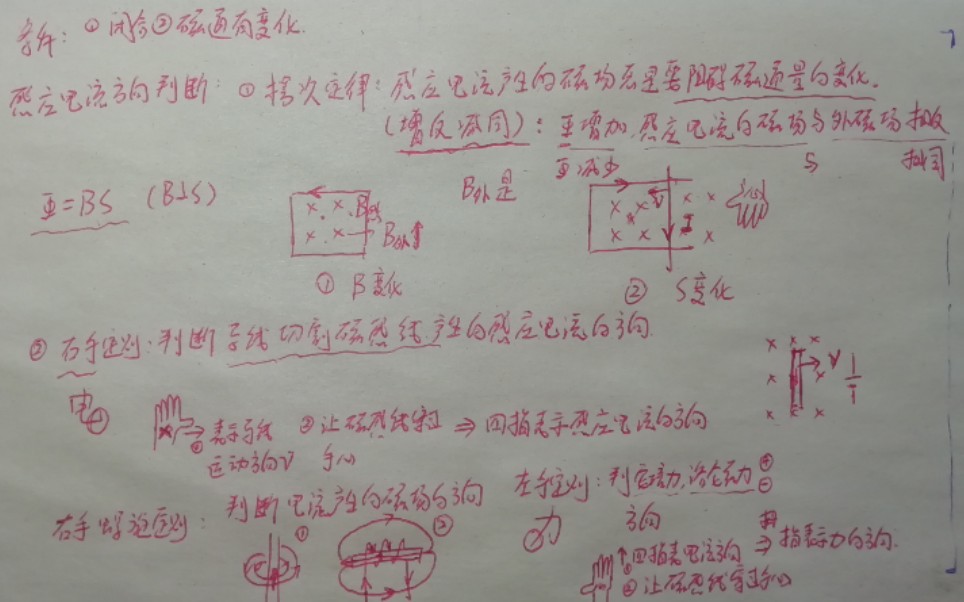 条件：①闭合②磁通有变化.
感应电流方向判断：①楞次定律：感应电流产生的磁场总是要阻碍磁通量的变化.
（增反减同）：Φ增加,感应电流的磁场与外磁场相反
Φ减少 ち 相同
Φ=BS （B⊥S） B感 B外↑ B外是 V I
① B变化 ② S变化
② 右手定则：判断导线切割磁感线产生的感应电流的方向.
V
电 ①表示导线运动方向V ②让磁感线穿过手心 ⇒ 四指表示感应电流的方向
右手螺旋定则：判断电流产生的磁场的方向 ① ②
左手定则：判安培力,洛伦兹力 ⊕ ⊖ 方向
力 ①四指表电流方向 ⇒ 拇指表示力的方向.
②让磁感线穿过手心